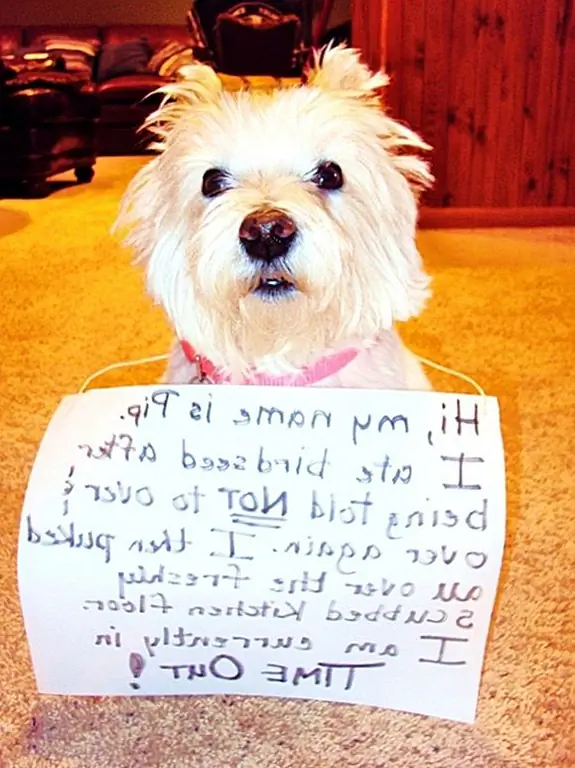 Hi, my name is Pip.
I ate birdseed after
being told NOT to over &
over again. I then puked
all over the freshly
scubbed kitchen floor.
I am currently in
TIME OUT!